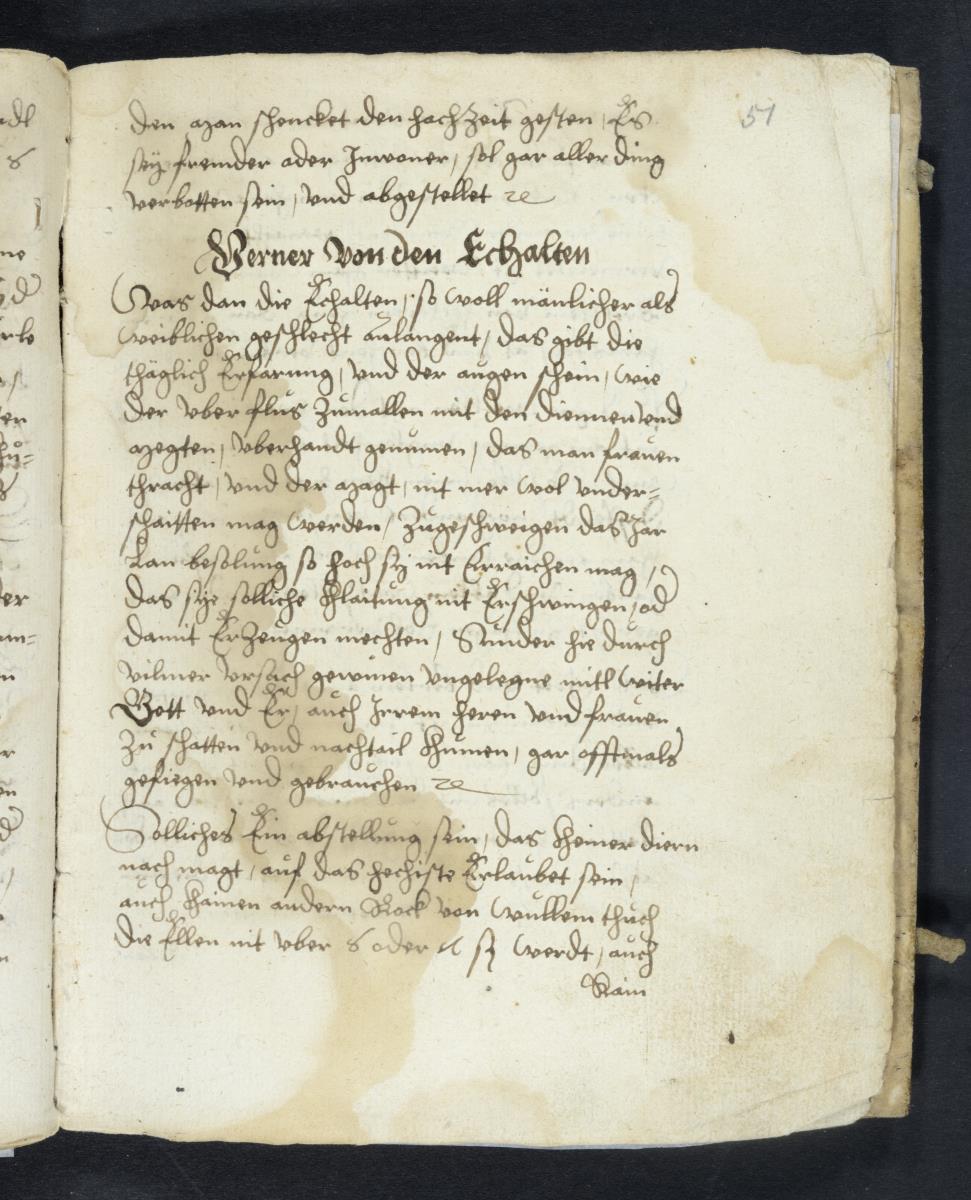 51
den man schencket den hachzeit gesten, Es
seÿ fremder oder Inwoner, sol gar aller ding
verbotten sein, vnd abgestellet ꝛc
Verner von den Echalten
Was dan die Echalten, so woll mänlicher als
weiblichen geschlecht anlangent, das gibt die
thäglich Erfarung, vnd der augen schein, wie
der vber flus zumallen mit den diennen vnd
megten, vberhandt genumen, das man frauen
thracht, vnd der magt, nit mer wol vnder=
schaitten mag werden, Zugeschweigen das Jar
Lan besolung so hoch sy nit Erraichen mag,
das sye solliche Khlaitung nit Erschwingen, od
damit Erzeugen mechten, Sunder hie durch
vilmer vrsach gewinen vngelegne mitl witer
Gott vnd Er, auch Irrem heren vnd frauen
zu schatten vnd nachtail khumen, gar offtmals
gefiegen vnd gebrauchen ꝛc
Solliches Ein abstellung sein, das kheiner diern
nach magt, auf das hechiste Erlaubet sein,
auch khainen andern Rock von wullem thuch
die Ellen nit vber 6 oder sy werdt, auch
Kain